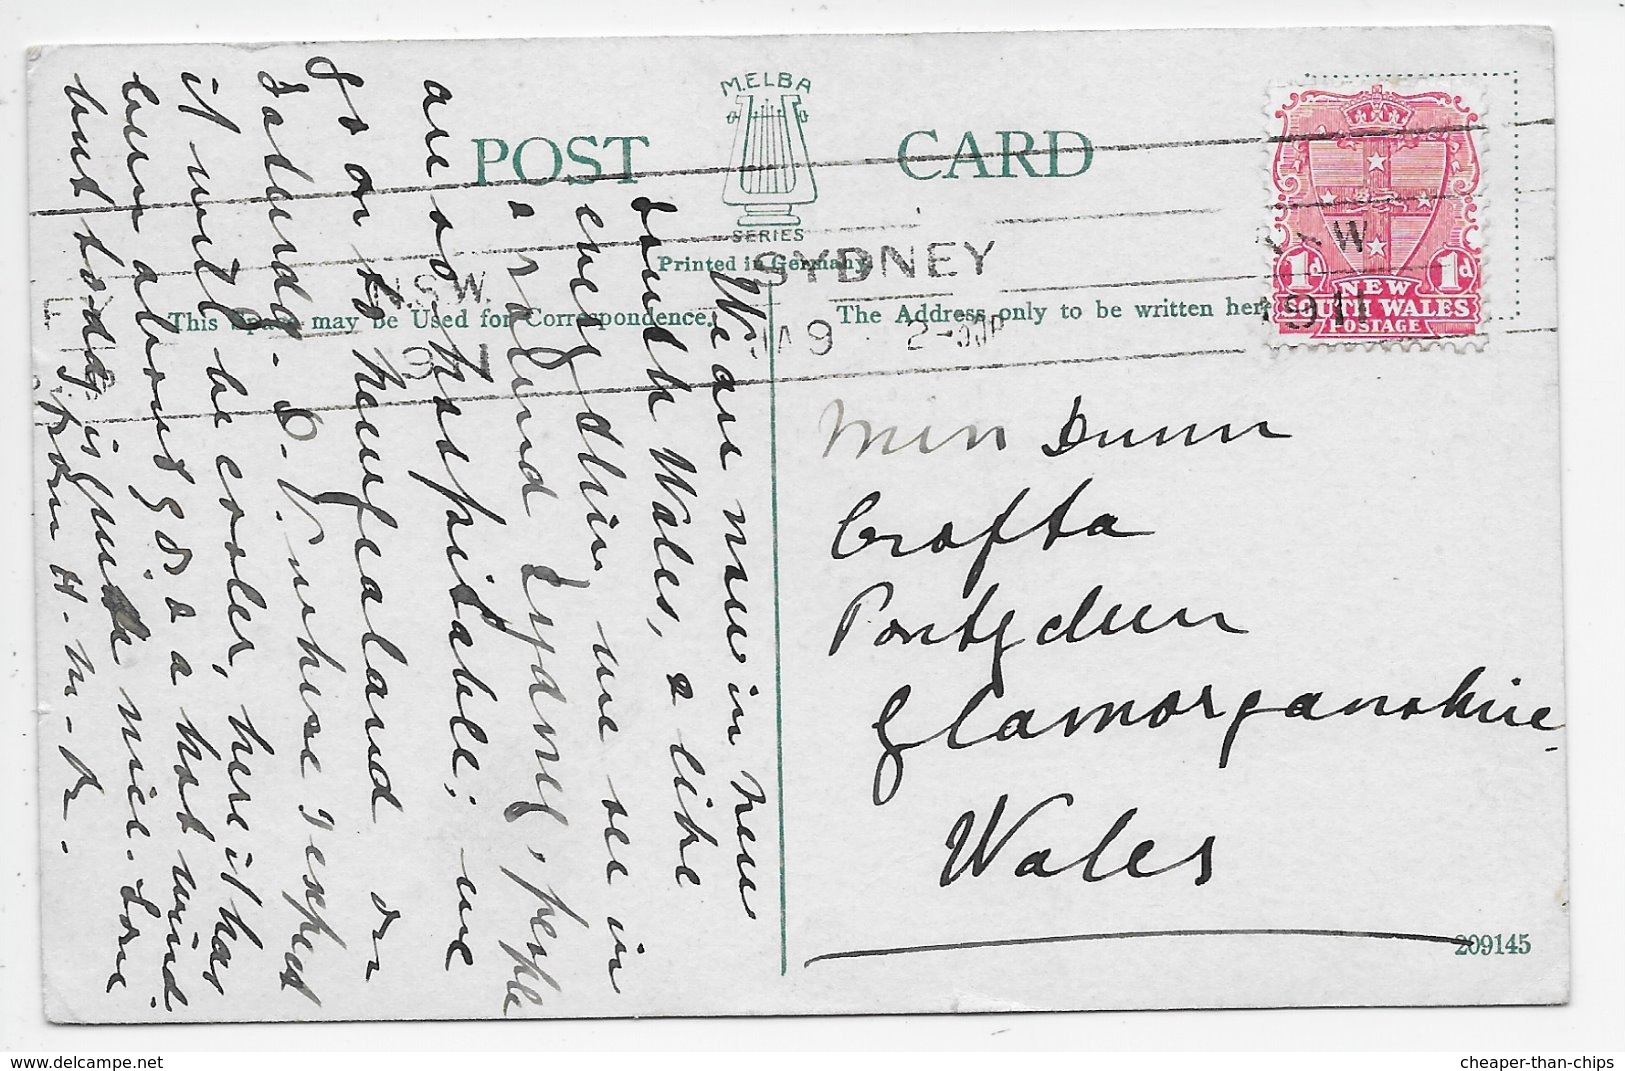 MELBA
POST CARD
SERIES
Printed in Germany
SYDNEY
N.S.W.
JA 9 2-30P
1911
This Space may be Used for Correspondence.
The Address only to be written here
1d 1d
NEW
SOUTH WALES
POSTAGE
We are now in New
South Wales, & like
every thing we see in
& round Sydney, people
are so hospitable; we
go on to New Zealand on
Saturday. D.V. where I expect
it will be cooler, here it has
been about 90 & a hot wind
but today is quite nice. Love
from H. M. R.
Miss Dunn
Crofta
Pontyclun
Glamorganshire
Wales
209145
cheaper-than-chips
delcampe.net